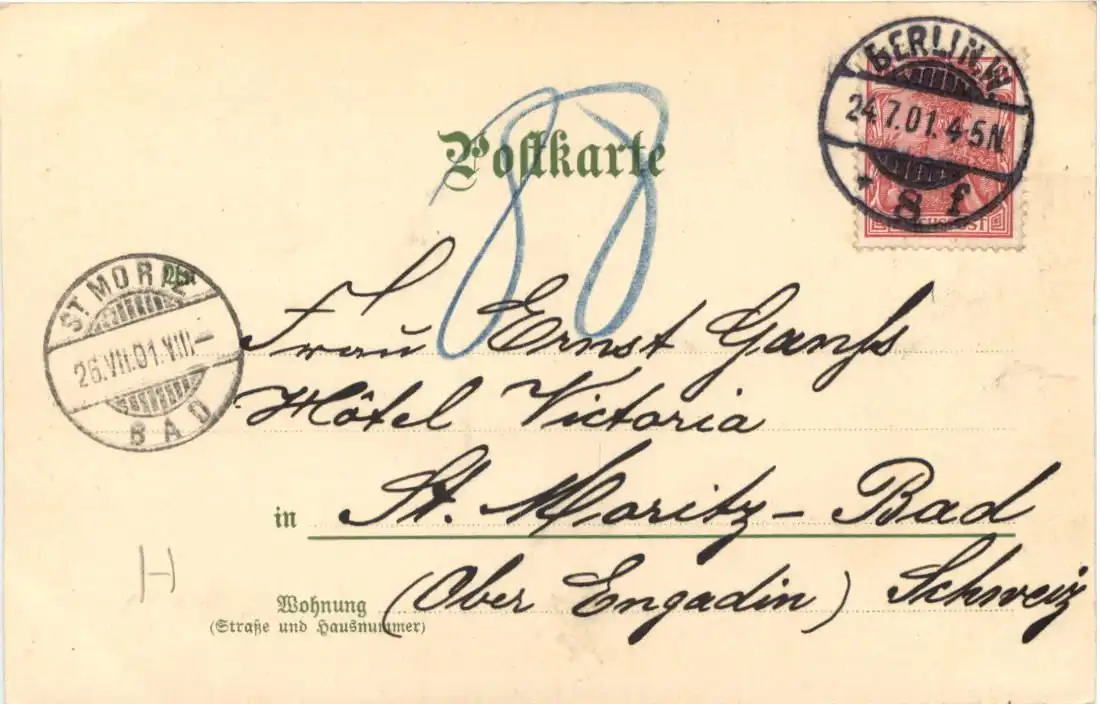 BERLIN.W
24.7.01.4-5N.
* 8 f
REICHSPOST
Postkarte
88
ST. MORITZ
26.VII.01.VIII–
BAD
Frau Ernst
Hôtel Victoria
in St. Moritz – Bad
Wohnung (Ober Engadin) Schweiz
(Straße und Hausnummer)
H